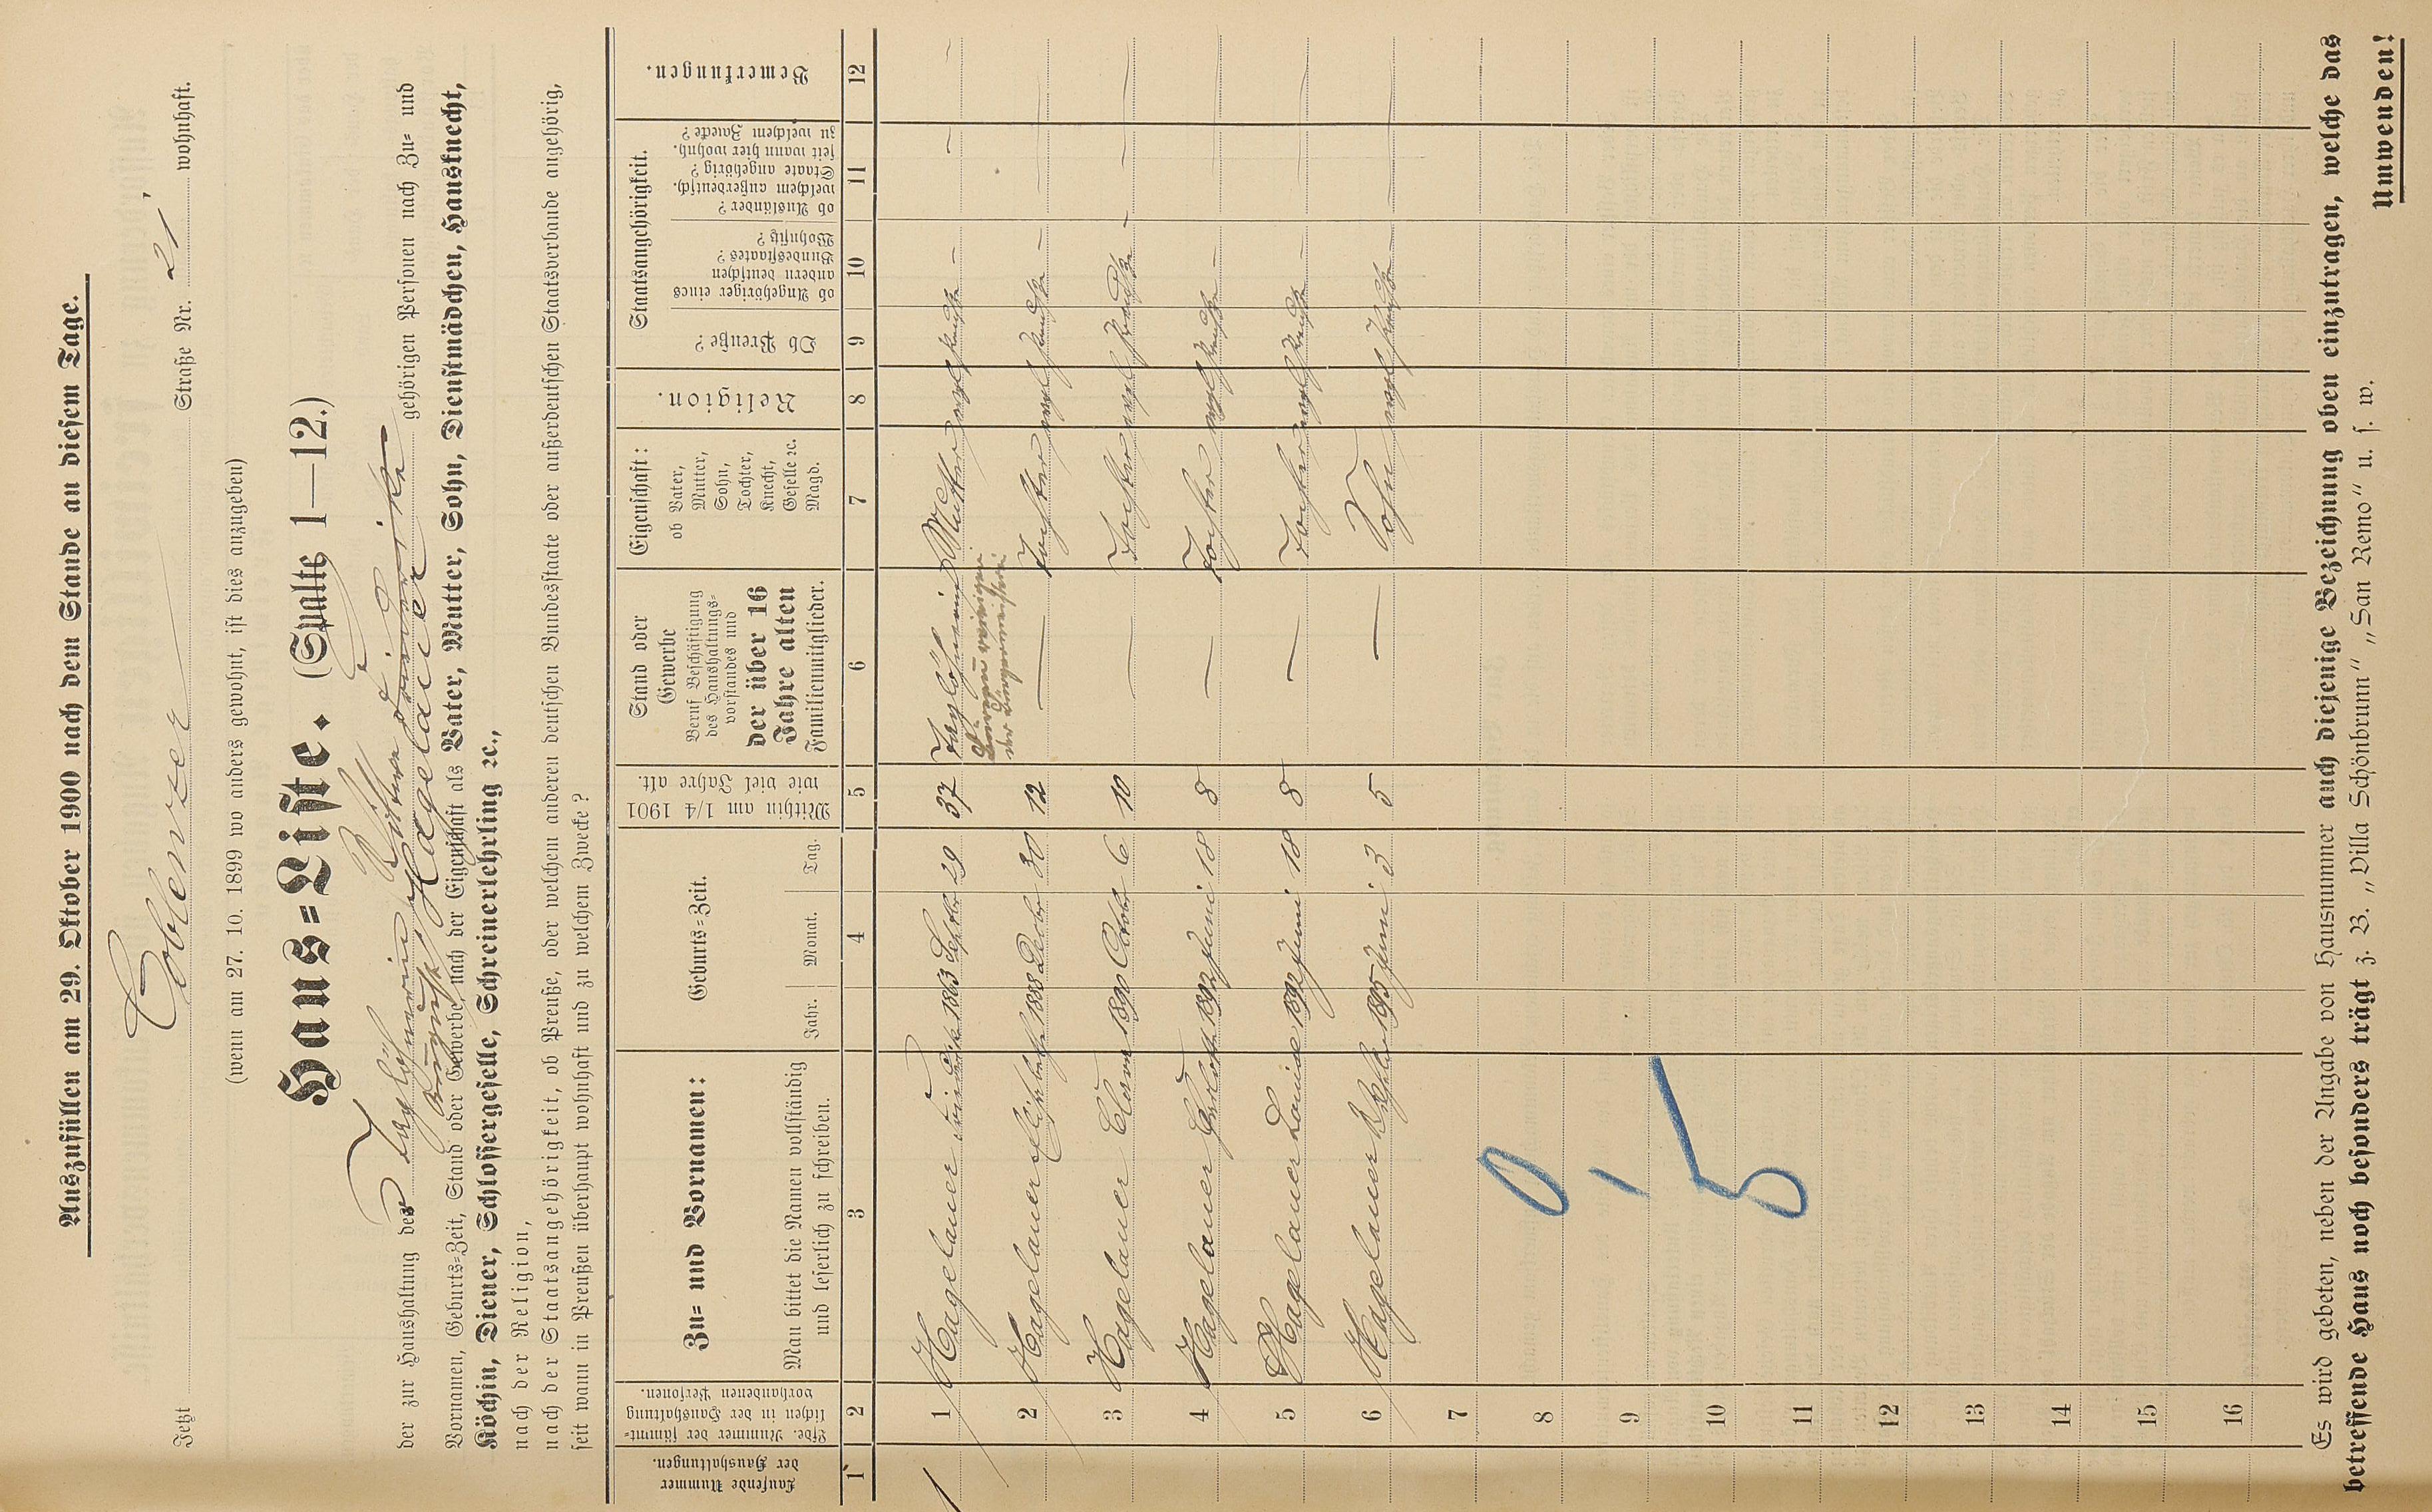 Auszufüllen am 29. Oktober 1900 nach dem Stande an diesem Tage.
Jetzt Coblenzer Straße Nr. 21 wohnhaft.
(wenn am 27. 10. 1899 wo anders gewohnt, ist dies anzugeben)
Haus=Liste. (Spalte 1—12.)
der zur Haushaltung der Taglöhnerin Wittwe
Hagelauer gehörigen Personen nach Zu= und
Vornamen, Geburts=Zeit, Stand oder Gewerbe, nach der Eigenschaft als Vater, Mutter, Sohn, Dienstmädchen, Hausknecht,
Köchin, Diener, Schlossergeselle, Schreinerlehrling ꝛc.,
nach der Religion,
nach der Staatsangehörigkeit, ob Preuße, oder welchem anderen deutschen Bundesstaate oder außerdeutschen Staatsverbande angehörig,
seit wann in Preußen überhaupt wohnhaft und zu welchem Zwecke?
Laufende Nummer der Haushaltungen.
Lfde. Nummer der sämmt=
lichen in der Haushaltung
vorhandenen Personen.
Zu= und Vornamen:
Man bittet die Namen vollständig
und leserlich zu schreiben.
Geburts=Zeit.
Jahr. Monat. Tag.
Mithin am 1/4 1901
wie viel Jahre alt.
Stand oder
Gewerbe
Beruf Beschäftigung
des Haushaltungs=
vorstandes und
der über 16
Jahre alten
Familienmitglieder.
Eigenschaft:
ob Vater,
Mutter,
Sohn,
Tochter,
Knecht,
Geselle ꝛc.
Magd.
Religion.
Staatsangehörigkeit.
Ob Preuße?
ob Angehöriger eines
andern deutschen
Bundesstaates?
Wohnsitz?
ob Ausländer?
welchem außerdeutsch.
Staate angehörig?
seit wann hier wohnh.
zu welchem Zwecke?
Bemerkungen.
1 2 3 4 5 6 7 8 9 10 11 12
1 1 Hagelauer 1863 Septbr 29 37 Taglöhnerin Mutter evgl — — —
2 Hagelauer Elisabeth 1888 Dezbr 30 12 — Tochter evgl — — —
3 Hagelauer 1890 Octobr 6 10 — Tochter evgl — — —
4 Hagelauer 1892 Juni 18 8 — Tochter evgl — — —
5 Hagelauer Louise 1892 Juni 18 8 — Tochter evgl — — —
6 Hagelauer 1895 Juni 3 5 — Sohn evgl — — —
7
8
9
10
11
12
13
14
15
16
0,5
Es wird gebeten, neben der Angabe von Hausnummer auch diejenige Bezeichnung oben einzutragen, welche das
betreffende Haus noch besonders trägt z. B. „Villa Schönbrunn“ „San Remo“ u. s. w.
Umwenden!